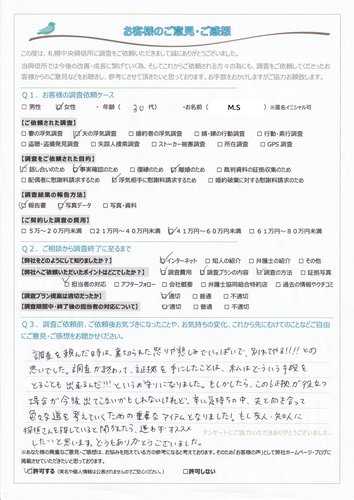 お客様のご意見・ご感想
この度は、札幌中央興信所に調査をご依頼いただきまして誠にありがとうございました。
当興信所では今後の改善・成長に繋げていく為、そしてこれからご依頼される方々の為にも、調査をご依頼してくださったお
客様からのご意見などをお聞きし、参考にさせて頂きたいと思っております。お手数をおかけしますがご協力お願い致します。
Q1. お客様の調査依頼ケース
□男性 ☑女性 ・年齢( 30代) ・お名前( M.S ) ※匿名イニシャル可
【ご依頼された調査】
□妻の浮気調査 ☑夫の浮気調査 □婚約者の浮気調査 □婿・嫁の行動調査 □行動・素行調査
□盗聴・盗撮発見調査 □失踪人捜索調査 □ストーカー被害調査 □所在調査 □GPS調査
【調査をご依頼された目的】
☑話し合いのため ☑事実確認のため □復縁のため ☑離婚のため □裁判資料の証拠収集のため
□配偶者に慰謝料請求するため ☑浮気相手に慰謝料請求するため □婚約破棄に対する慰謝料請求のため
【調査結果の報告方法】
☑報告書 ☑写真データ □写真・資料
【ご契約した調査の費用】
□5万~20万円未満 □21万円~40万円未満 ☑41万円~60万円未満 □61万円~80万円未満
Q2. ご相談から調査終了に至るまで
【弊社をどのようにして知りましたか?】 ☑インターネット □知人の紹介 □弁護士の紹介 □その他
【弊社へご依頼いただいたポイントはどこでしたか?】 ☑調査費用 ☑調査プランの内容 ☑調査の方法 □証拠写真
☑担当者の対応 □アフターフォロー □会社概要 □弁護士協同組合特約店 □過去の情報やクチコミ
【調査プラン提案は適切だったか】 ☑適切 □普通 □不適切
【調査期間中・終了後の担当者の対応について】 ☑適切 □普通 □不適切
Q3. 調査ご依頼前、ご依頼後お気づきになったことや、お気持ちの変化、これから先にむけてのことなどご自由
にご意見・ご感想をお聞かせください。
調査を頼んだ時は、裏切られた怒りや悲しみでいっぱいで、別れてやる!!!!との
思いでした。調査が終わって、証拠を手にしたことは、私はどういう手段を
とることも出来るんだ!!!という自信になりました。もしかしたら、この証拠が役立つ
場合が今後出てこないかもしれないけれど、辛い気持ちの中、夫と向き合って
色々な道を考えていくための重要なアイテムとなりました!もし友人・知人に
探偵さんを探していると聞かれたら、迷わずオススメ
したいと思います。どうもありがとうございました。
アンケートにご協力いただきありがとうございました。
お客様の貴重なご意見・ご感想は、お悩みを抱えている方の参考になると考えております。そのため「お客様の声」として弊社ホームページ・ブログに
掲載させていただきたいと思っております。
☑許可する (実名や個人情報は公表されませんのでご安心ください。) □許可しない